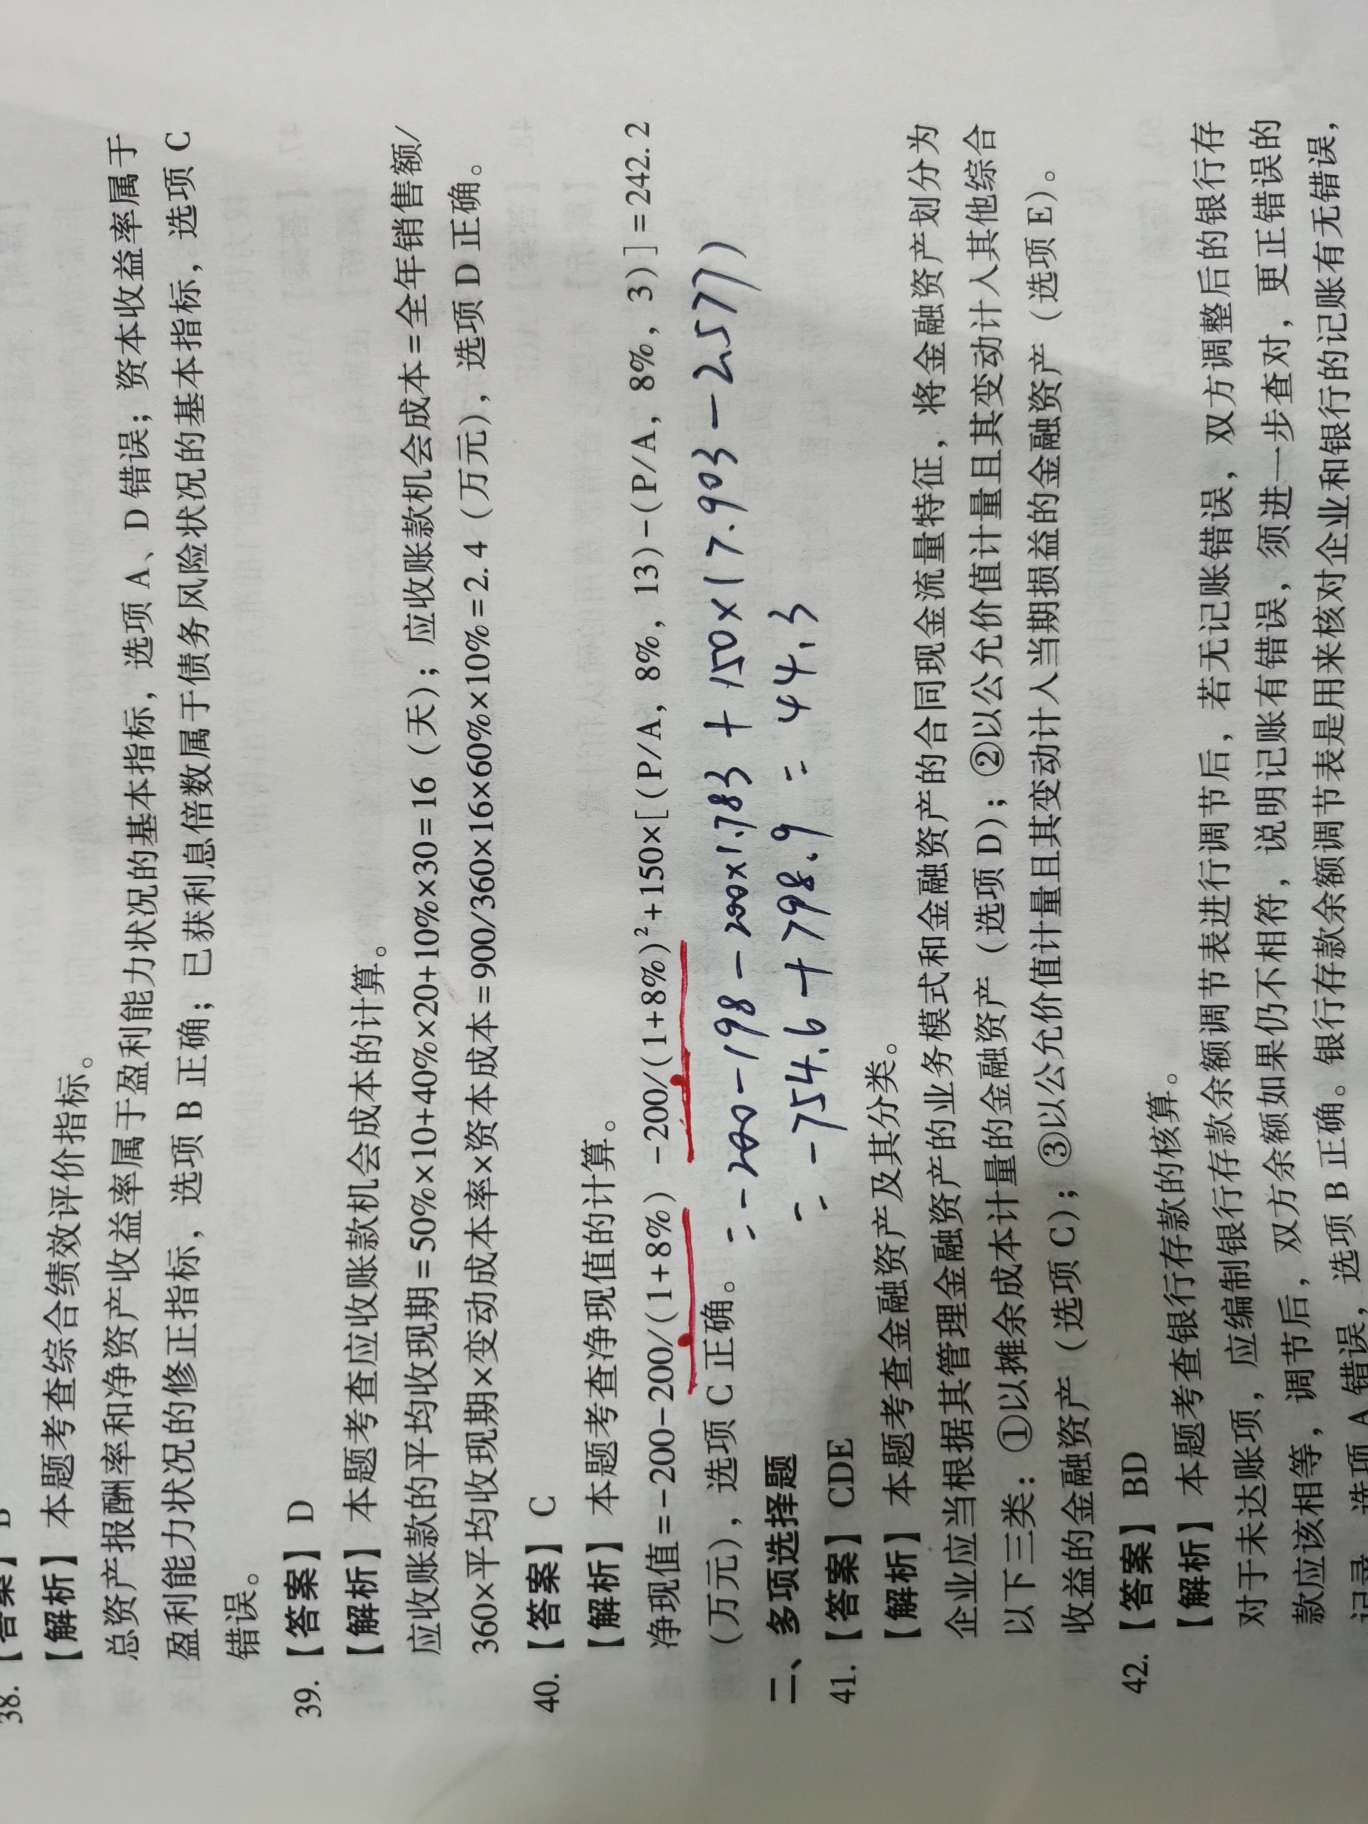 38.【答案】B
【解析】本题考查综合绩效评价指标。
总资产报酬率和净资产收益率属于盈利能力状况的基本指标，选项 A、D 错误；资本收益率属于
盈利能力状况的修正指标，选项 B 正确；已获利息倍数属于债务风险状况的基本指标，选项 C
错误。
39.【答案】D
【解析】本题考查应收账款机会成本的计算。
应收账款的平均收现期=50%×10+40%×20+10%×30=16（天）；应收账款机会成本=全年销售额/
360×平均收现期×变动成本率×资本成本=900/360×16×60%×10%=2.4（万元），选项 D 正确。
40.【答案】C
【解析】本题考查净现值的计算。
净现值=-200-200/(1+8%) -200/(1+8%)²+150×[(P/A, 8%, 13)-(P/A, 8%, 3)]=242.2
（万元），选项 C 正确。
= -200-198-200×1.783+150×(7.903-2.577)
= -754.6+798.9 = 44.3
二、多项选择题
41.【答案】CDE
【解析】本题考查金融资产及其分类。
企业应当根据其管理金融资产的业务模式和金融资产的合同现金流量特征，将金融资产划分为
以下三类：①以摊余成本计量的金融资产（选项 D）；②以公允价值计量且其变动计入其他综合
收益的金融资产（选项 C）；③以公允价值计量且其变动计入当期损益的金融资产（选项 E）。
42.【答案】BD
【解析】本题考查银行存款的核算。
对于未达账项，应编制银行存款余额调节表进行调节后，若无记账错误，双方调整后的银行存
款应该相等，调节后，双方余额如果仍不相符，说明记账有错误，须进一步查对，更正错误的
记录，选项 A 错误，选项 B 正确。银行存款余额调节表是用来核对企业和银行的记账有无错误，